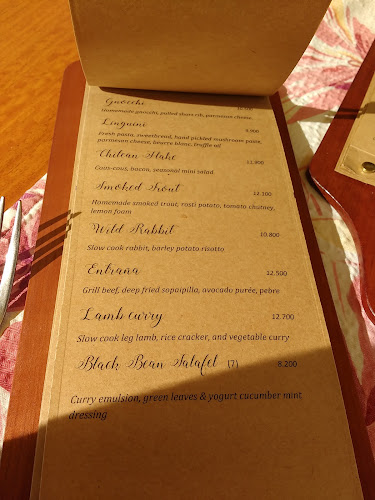 Gnocchi
Homemade gnocchi, pulled short rib, parmesan cheese
Linguini 9.900
Fresh pasta, sweetbread, hand pickled mushroom paste,
parmesan cheese, beurre blanc, truffle oil
Chilean Hake 11.900
Cous-cous, bacon, seasonal mini salad
Smoked Trout 12.100
Homemade smoked trout, rosti potato, tomato chutney,
lemon foam
Wild Rabbit 10.800
Slow cook rabbit, barley potato risotto
Entraña 12.500
Grill beef, deep fried sopaipilla, avocado purée, pebre
Lamb curry 12.700
Slow cook leg lamb, rice cracker, and vegetable curry
Black Bean Falafel (7) 8.200
Curry emulsion, green leaves & yogurt cucumber mint
dressing